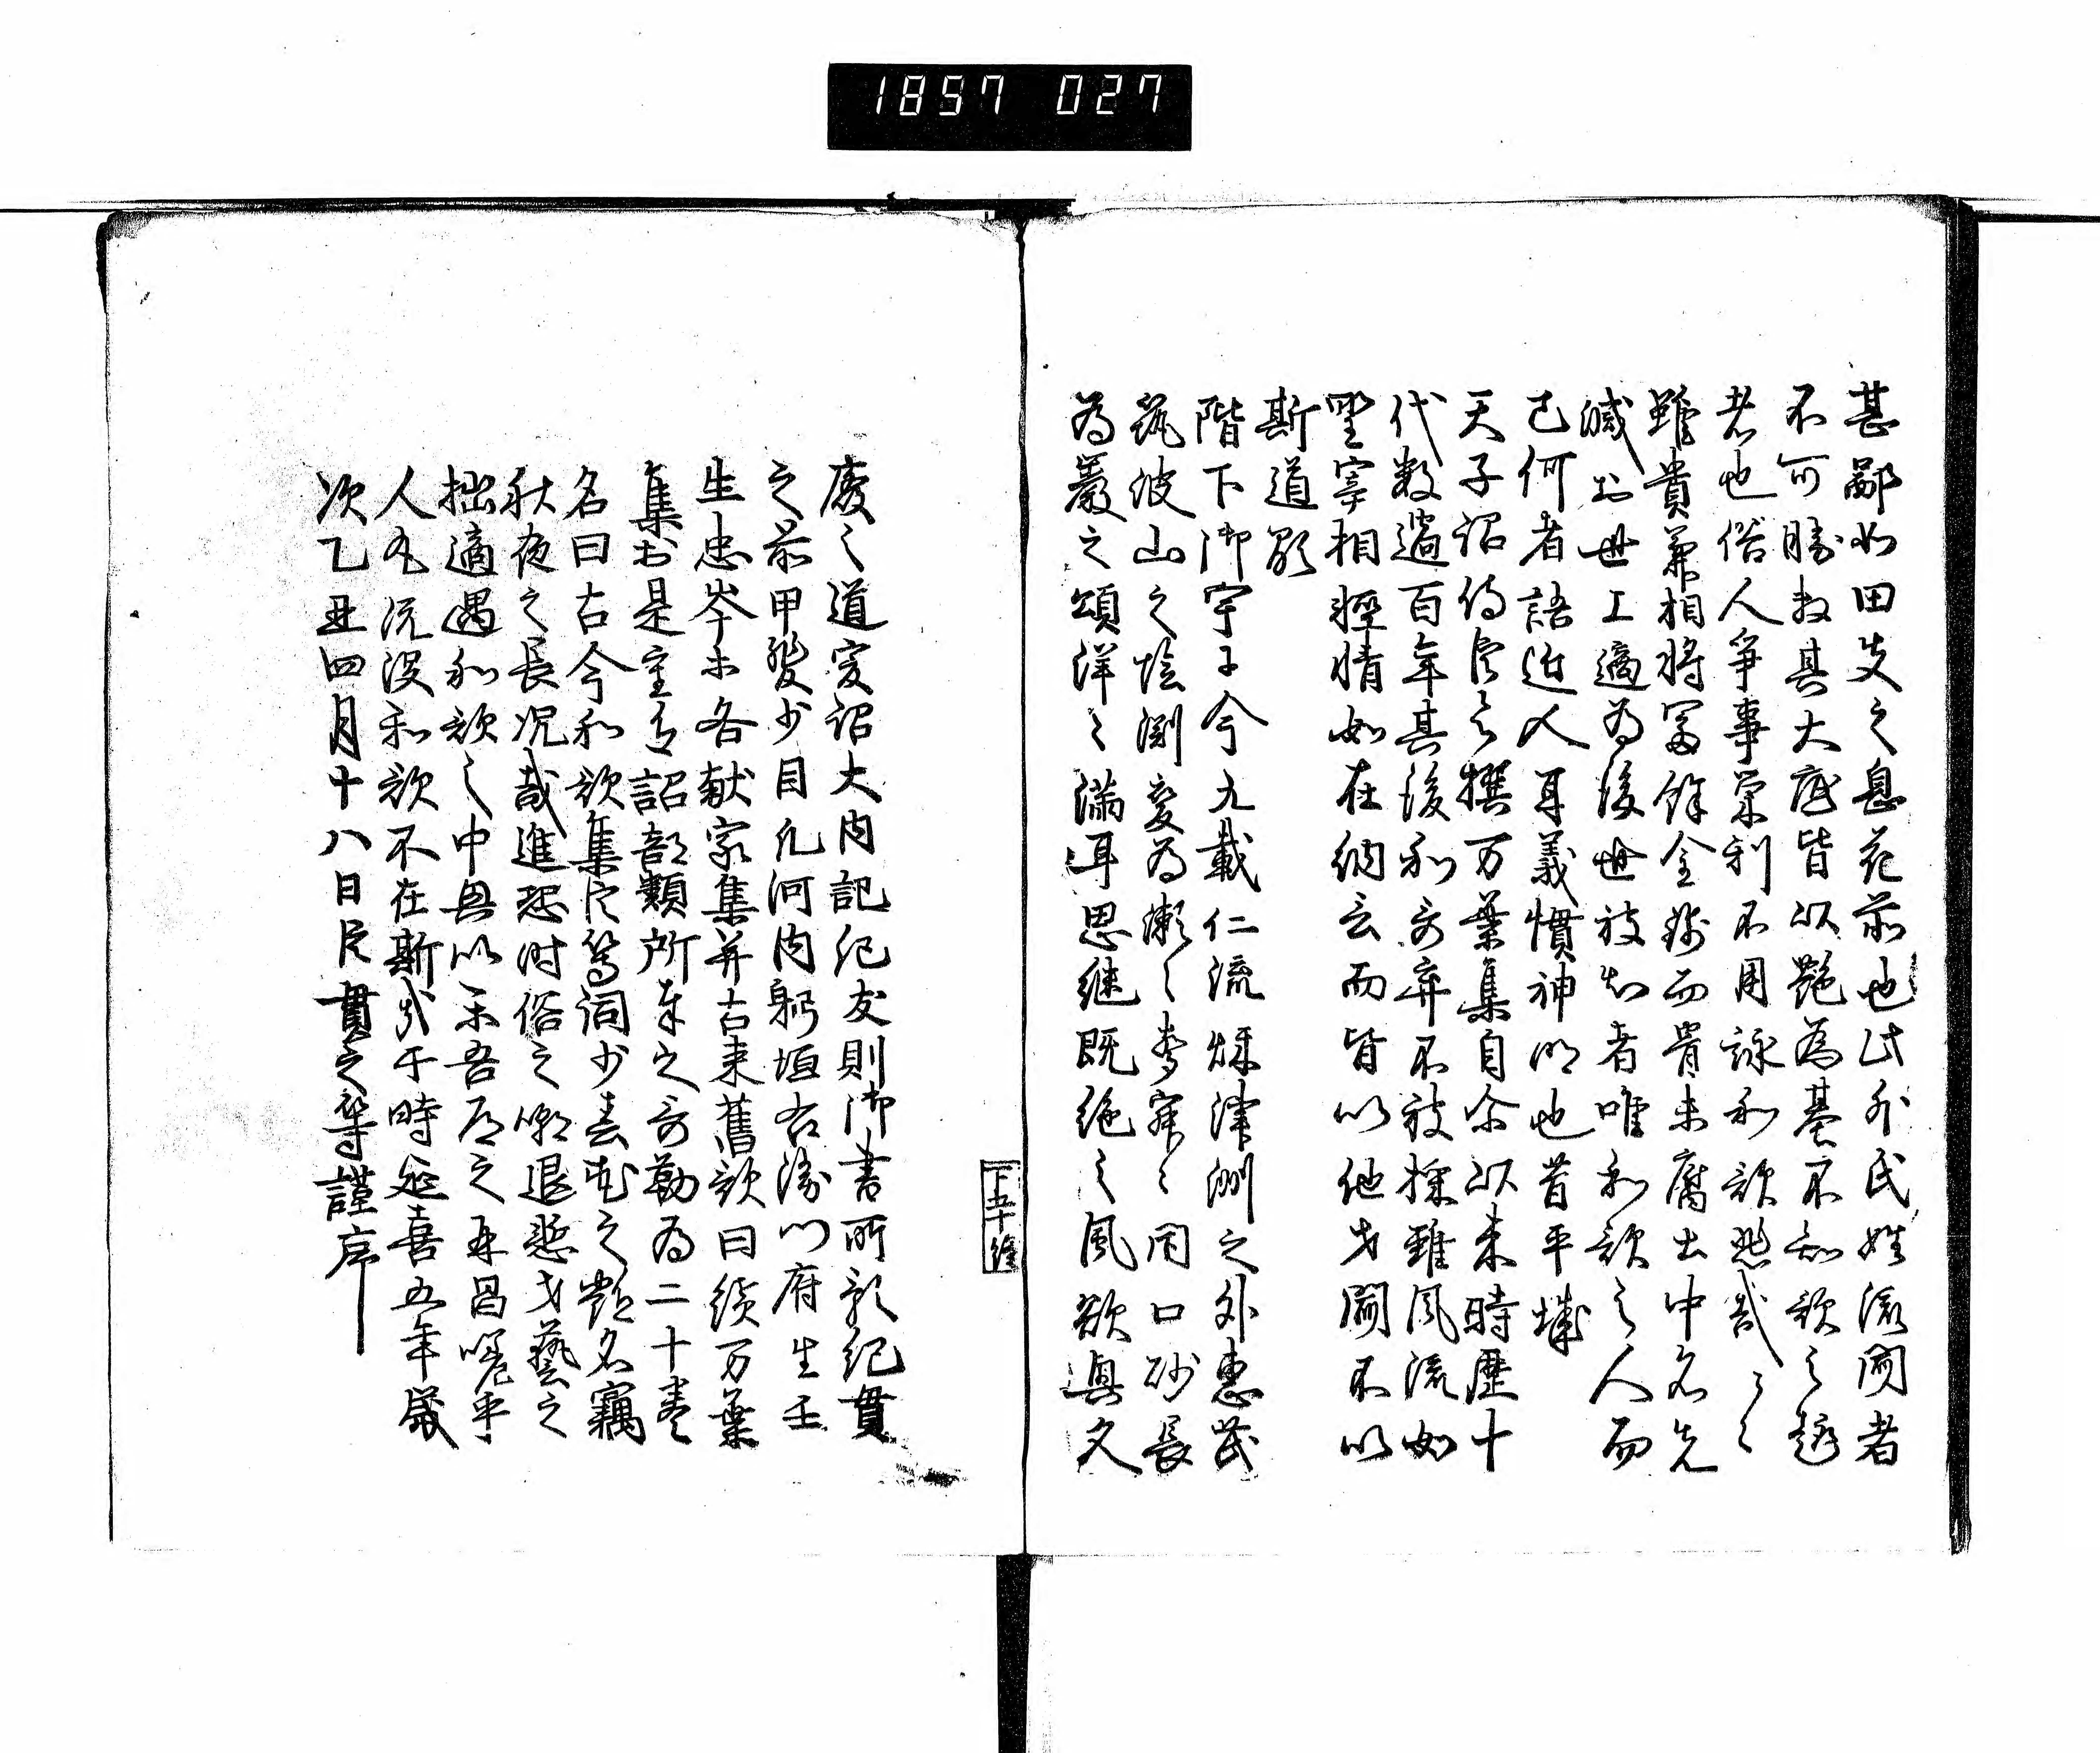 1857 027
甚鄙如田夫之息花前也此外氏姓流聞者
不可勝数其大底皆以艶為基不知歌之趣
者也俗人争事栄利不用詠和歌悲哉〻〻
雖貴兼相将冨餘金銭而骨未腐土中名先
滅於世上適為後世被知者唯和歌之人而
已何者語近人耳義慣神明也昔平城
天子詔侍臣令撰万葉集自尓以来時歴十
代数過百年其後和哥弃不被採雖風流如
野宰相軽情如在納言而皆以他才聞不以
斯道顕
階下御宇于今九載仁流秌津洲之外恵茂
筑波山之陰渕変為瀬之聲寂〻閇口砂長
為巖之頌洋〻満耳思継既絶之風欲興久
廃之道爰詔大内記紀友則御書所預紀貫
之前甲斐少目凡河内躬恒右衛門府生壬
生忠岑等各献家集并古来舊歌曰続万葉
集於是重有詔部類所奉之哥勒為二十巻
名曰古今和歌集臣等詞少春花之艶名竊
秋夜之長况哉進恐時俗之嘲退慙才藝之
拙適遇和歌之中興以楽吾道之再昌嗟乎
人丸既没和歌不在斯哉于時延喜五年歳
次乙丑四月十八日臣貫之等謹序
下五十終